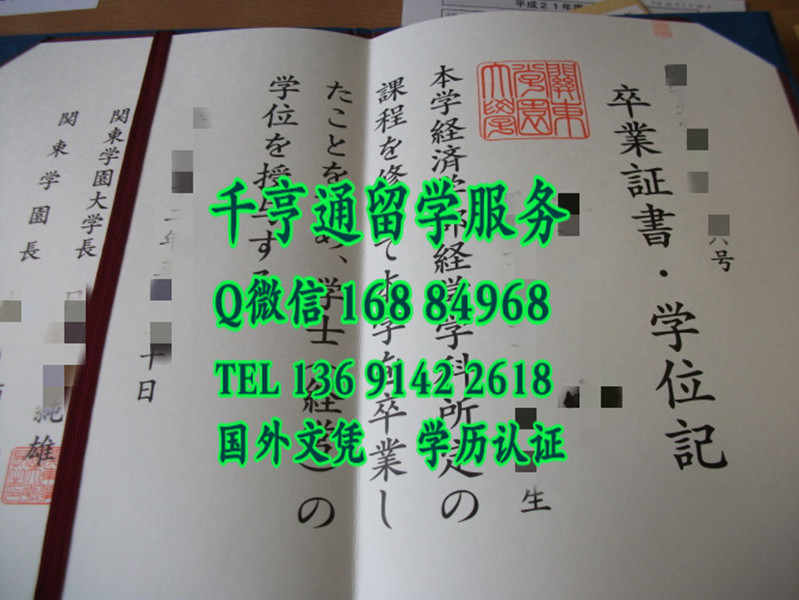 平成21年度
号
卒業証書・学位記
生
関東学園大学
本学経済学部経済学科所定の
課程を修めて本学を卒業し
たことを認め、学士(経営)の
学位を授与する
十日
関東学園大学長
関東学園長
雄
千亨通留学服务
Q微信 168 84968
TEL 136 9142 2618
国外文凭 学历认证